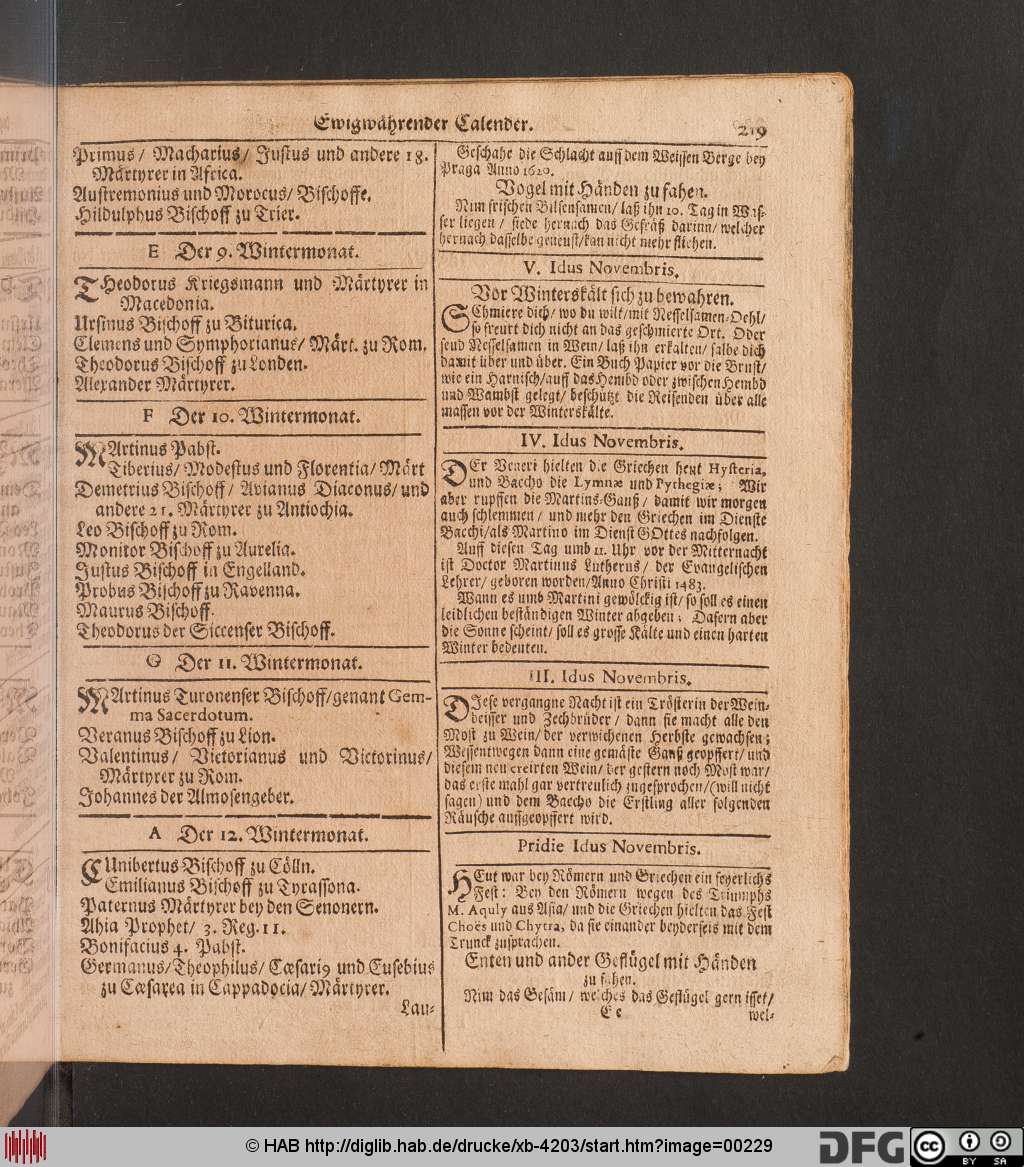 Ewigwährender Calender.
219
Primus/ Macharius/ Justus und andere 18.
Märtyrer in Africa.
Austremonius und Morocus/ Bischoffe.
Hildulphus Bischoff zu Trier.
E Der 9. Wintermonat.
THeodorus Kriegsmann und Märtyrer in
Macedonia.
Ursinus Bischoff zu Biturica.
Clemens und Symphorianus/ Märt. zu Rom.
Theodorus Bischoff zu Londen.
Alexander Märtyrer.
F Der 10. Wintermonat.
MArtinus Pabst.
Tiberius/ Modestus und Florentia/ Märt
Demetrius Bischoff/ Avianus Diaconus/ und
andere 21. Märtyrer zu Antiochia.
Leo Bischoff zu Rom.
Monitor Bischoff zu Aurelia.
Justus Bischoff in Engelland.
Probus Bischoff zu Ravenna.
Maurus Bischoff.
Theodorus der Siccenser Bischoff.
G Der 11. Wintermonat.
MArtinus Turonenser Bischoff/genant Gem-
ma Sacerdotum.
Veranus Bischoff zu Lion.
Valentinus/ Victorianus und Victorinus/
Märtyrer zu Rom.
Johannes der Almosengeber.
A Der 12. Wintermonat.
CUnibertus Bischoff zu Cölln.
Emilianus Bischoff zu Tyrassona.
Paternus Märtyrer bey den Senonern.
Ahia Prophet/ 3. Reg. 11.
Bonifacius 4. Pabst.
Germanus/Theophilus/ Cæsari9 und Eusebius
zu Cæsarea in Cappadocia/ Märtyrer.
Lau-
Geschahe die Schlacht auff dem Weissen Berge bey
Praga Anno 1620.
Vogel mit Händen zu fahen.
Nim frischen Bilsensamen/ laß ihn 10. Tag in Was-
ser liegen/ siede hernach das Gefräß darinn/ welcher
hernach dasselbe geneust/kan nicht mehr fliehen.
V. Idus Novembris.
Vor Winterskält sich zu bewahren.
SChmiere dich/ wo du wilt/mit Nesselsamen-Oehl/
so freurt dich nicht an das geschmierte Ort. Oder
seud Nesselsamen in Wein/ laß ihn erkalten/ salbe dich
damit über und über. Ein Buch Papier vor die Brust/
wie ein Harnisch/auff das Hembd oder zwischen Hembd
und Wambst gelegt/ beschützt die Reisenden über alle
massen vor der Winterskälte.
IV. Idus Novembris.
DEr Veneri hielten die Griechen heut Hysteria,
und Baccho die Lymnæ und Pythegiæ; Wir
aber rupffen die Martins-Ganß/ damit wir morgen
auch schlemmen/ und mehr den Griechen im Dienste
Bacchi/als Martino im Dienst GOttes nachfolgen.
Auff diesen Tag umb 11. Uhr vor der Mitternacht
ist Doctor Martinus Lutherus/ der Evangelischen
Lehrer/ geboren worden/Anno Christi 1483.
Wann es umb Martini gewölckig ist/ so soll es einen
leidlichen beständigen Winter abgeben; Dafern aber
die Sonne scheint/ soll es grosse Kälte und einen harten
Winter bedeuten.
III. Idus Novembris.
DIese vergangne Nacht ist ein Trösterin der Wein-
beisser und Zechbrüder/ dann sie macht alle den
Most zu Wein/ der verwichenen Herbste gewachsen;
Wessentwegen dann eine gemäste Ganß geopffert/ und
diesem neu creirten Wein/ der gestern noch Most war/
das erste mahl gar vertreulich zugesprochen/(will nicht
sagen) und dem Baccho die Erstling aller folgenden
Räusche auffgeopffert wird.
Pridie Idus Novembris.
HEut war bey Römern und Griechen ein feyerlichs
Fest: Bey den Römern wegen des Triumphs
M. Aquly aus Asia/ und die Griechen hielten das Fest
Choës und Chytra, da sie einander beyderseis mit dem
Trunck zusprachen.
Enten und ander Geflügel mit Händen
zu fahen.
Nim das Gesäm/ welches das Geflügel gern isset/
Ee
wel-
© HAB http://diglib.hab.de/drucke/xb-4203/start.htm?image=00229
DFG
cc
BY SA